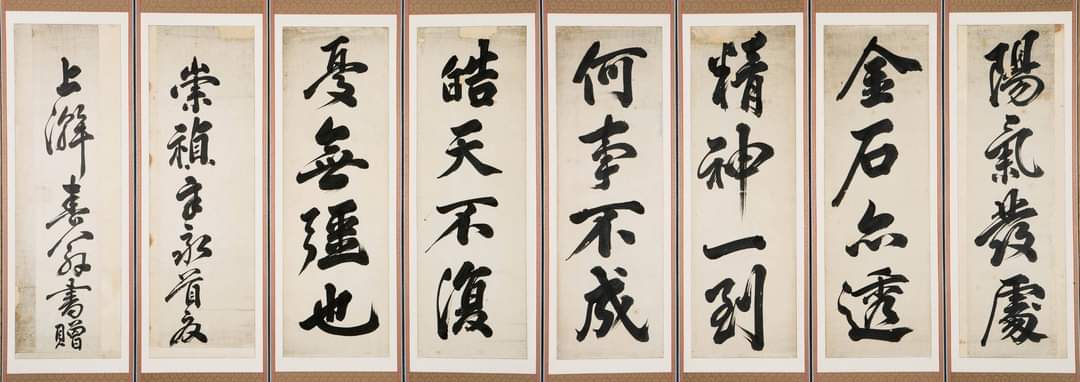 陽氣發處
金石亦透
精神一到
何事不成
皓天不復
憂無彊也
崇禎辛首夏
上澣春翁書贈